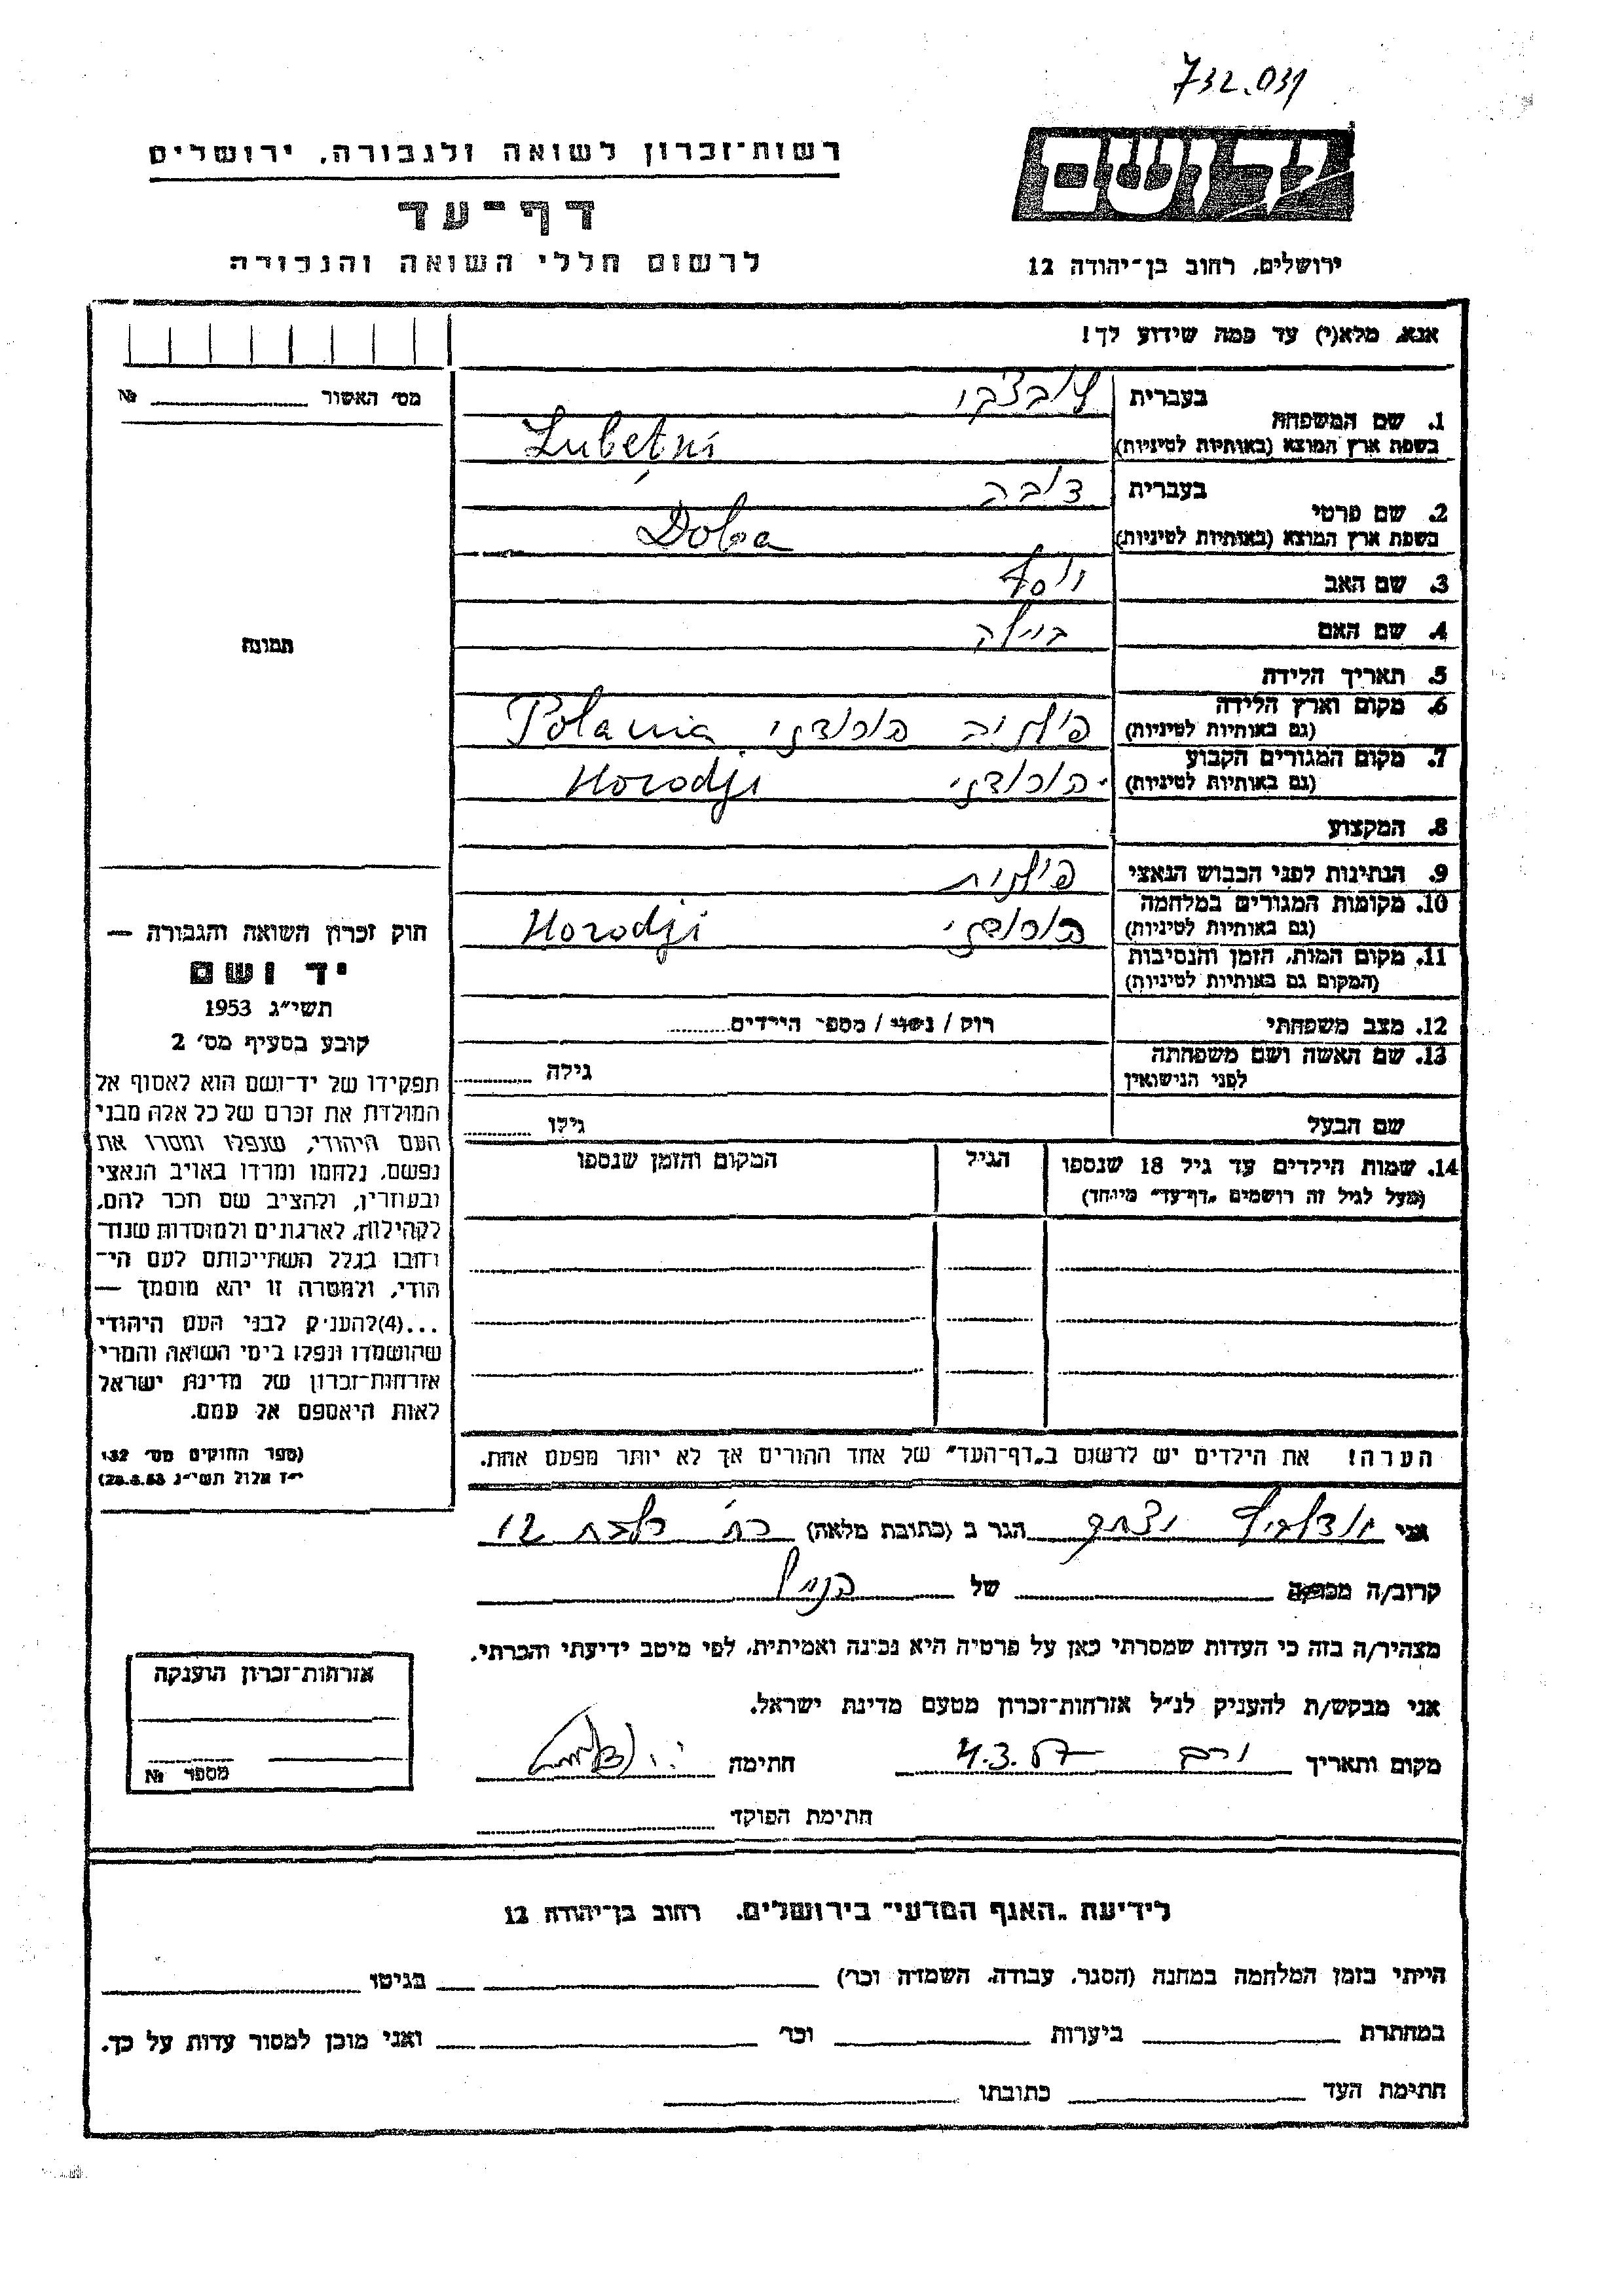 732.031
רשות-זכרון לשואה ולגבורה, ירושלים
דף-עד
לרשום חללי השואה והגבורה
יד ושם
ירושלים, רחוב בן-יהודה 12
אנא, מלא(י) עד כמה שידוע לך!
מס' האשור № 
1. שם המשפחה
בעברית
בשפת ארץ המוצא (באותיות לטיניות)
Lubetni
2. שם פרטי
בעברית דובה
בשפת ארץ המוצא (באותיות לטיניות) Doba
3. שם האב יוסף
4. שם האם ביילה
5. תאריך הלידה
6. מקום וארץ הלידה
(גם באותיות לטיניות)
פולניה הורודזי Polania
7. מקום המגורים הקבוע
(גם באותיות לטיניות)
הורודזי Horodji
8. המקצוע
9. הנתינות לפני הכבוש הנאצי פולנית
10. מקומות המגורים במלחמה
(גם באותיות לטיניות)
הורודזי Horodji
11. מקום המות, הזמן והנסיבות
(המקום גם באותיות לטיניות)
12. מצב משפחתי רווק / נשוי / מספר הילדים
13. שם האשה ושם משפחתה
לפני הנישואין
גילה
שם הבעל גילו
14. שמות הילדים עד גיל 18 שנספו
(מעל לגיל זה רושמים "דף-עד" מיוחד)
הגיל
המקום והזמן שנספו
תמונה
חוק זכרון השואה והגבורה —
יד ושם
תשי"ג 1953
קובע בסעיף מס' 2
תפקידו של יד-ושם הוא לאסוף אל
המולדת את זכרם של כל אלה מבני
העם היהודי, שנפלו ומסרו את
נפשם, נלחמו ומרדו באויב הנאצי
ובעוזריו, ולהציב שם וזכר להם,
לקהילות, לארגונים ולמוסדות שנח-
רבו בגלל השתייכותם לעם הי-
הודי, ולמטרה זו יהא מוסמך —
...(4)להעניק לבני העם היהודי
שהושמדו ונפלו בימי השואה והמרי
אזרחות-זכרון של מדינת ישראל
לאות היאספם אל עמם.
(ספר החוקים מס' 132
י"ז אלול תשי"ג 28.8.53)
הערה! את הילדים יש לרשום ב"דף-העד" של אחד ההורים אך לא יותר מפעם אחת.
אני יצחק הגר ב (כתובת מלאה) 12
קרוב/ה מכר/ה של הנ"ל
מצהיר/ה בזה כי העדות שמסרתי כאן על פרטיה היא נכונה ואמיתית, לפי מיטב ידיעתי והכרתי.
אני מבקש/ת להעניק לנ"ל אזרחות-זכרון מטעם מדינת ישראל.
מקום ותאריך 4.3.57 חתימה
חתימת הפוקד
אזרחות-זכרון הוענקה
מספר №
לידיעת "האגף המדעי" בירושלים, רחוב בן-יהודה 12
הייתי בזמן המלחמה במחנה (הסגר, עבודה, השמדה וכו') בגיטו
במחתרת ביערות וכו' ואני מוכן למסור עדות על כך.
חתימת העד כתובתו